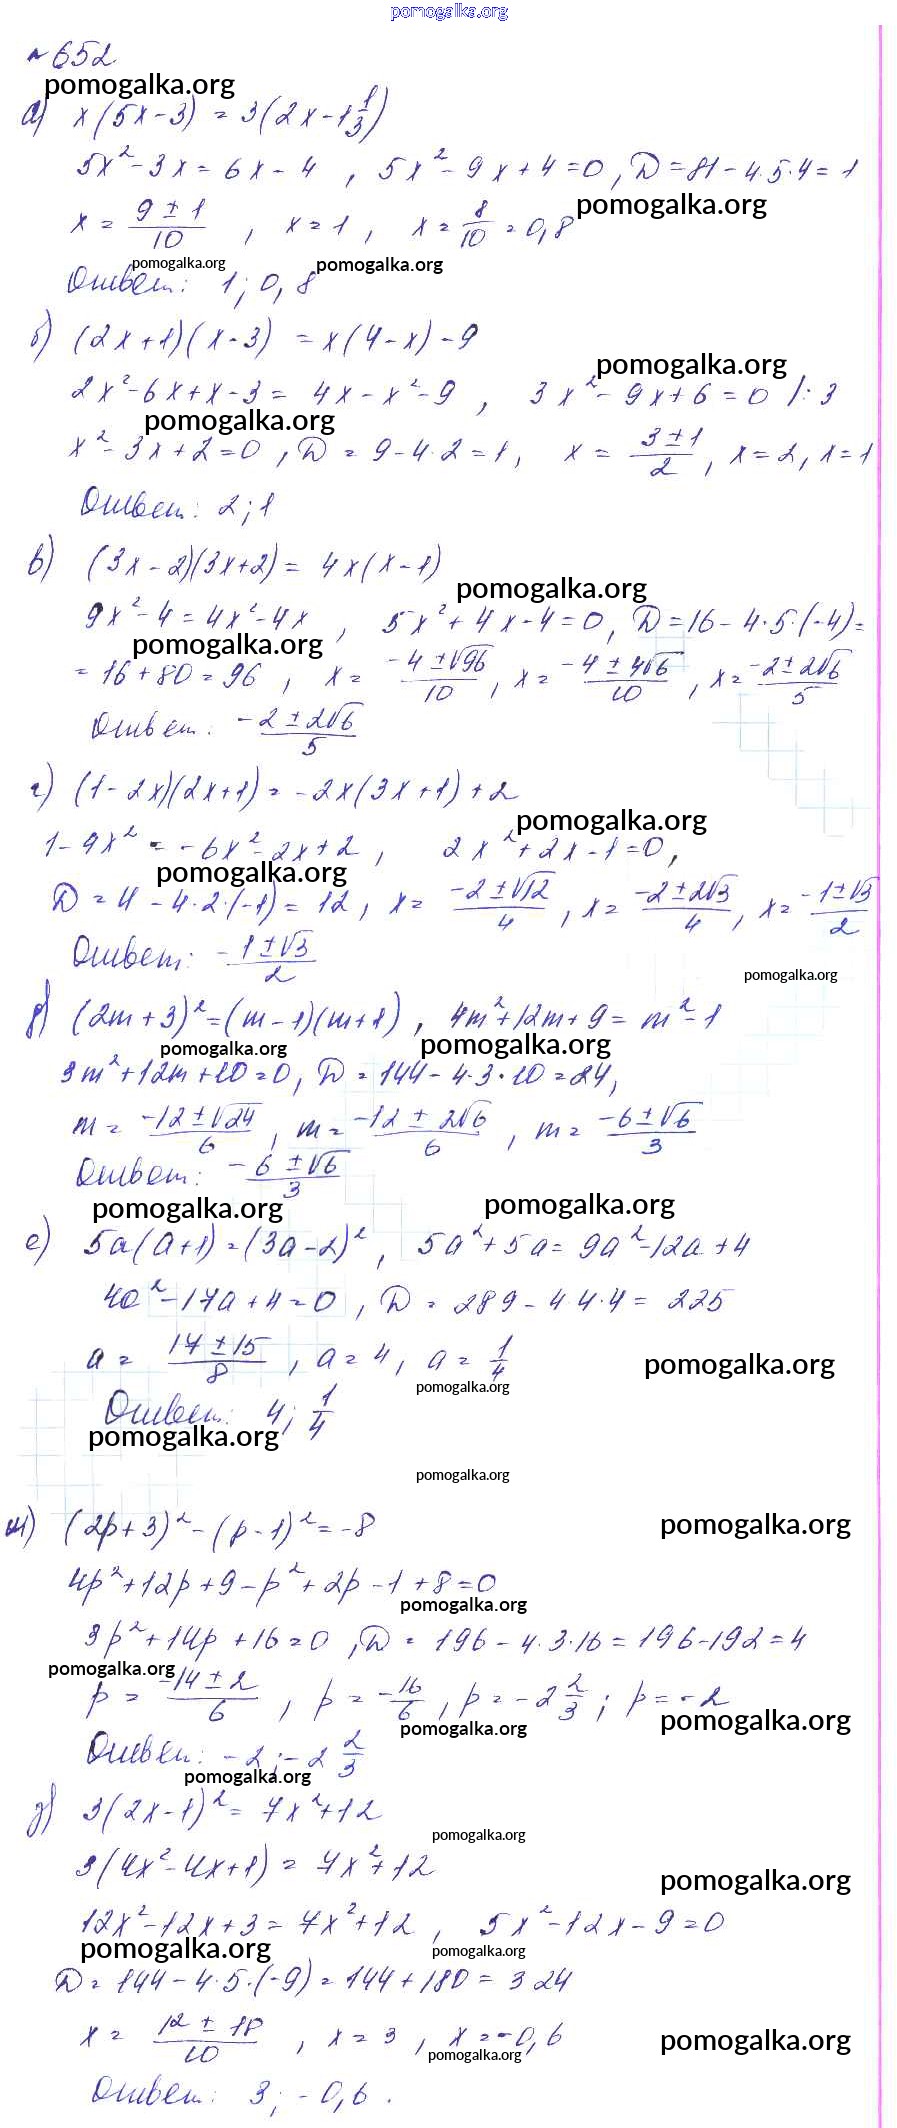 pomogalka.org
№652
pomogalka.org
а) x(5x-3) = 3(2x-1 1/3)
5x²-3x=6x-4, 5x²-9x+4=0, D=81-4·5·4=1
pomogalka.org
x = (9±1)/10, x=1, x=8/10=0,8
pomogalka.org pomogalka.org
Ответ: 1; 0,8
б) (2x+1)(x-3) = x(4-x)-9
pomogalka.org
2x²-6x+x-3 = 4x-x²-9, 3x²-9x+6=0 /:3
pomogalka.org
x²-3x+2=0, D=9-4·2=1, x=(3±1)/2, x=2, x=1
Ответ: 2; 1
в) (3x-2)(3x+2) = 4x(x-1)
pomogalka.org
9x²-4=4x²-4x, 5x²+4x-4=0, D=16-4·5·(-4)=
pomogalka.org
=16+80=96, x=(-4±√96)/10, x=(-4±4√6)/10, x=(-2±2√6)/5
Ответ: (-2±2√6)/5
г) (1-2x)(2x+1)=-2x(3x+1)+2
pomogalka.org
1-4x²=-6x²-2x+2, 2x²+2x-1=0,
pomogalka.org
D=4-4·2·(-1)=12, x=(-2±√12)/4, x=(-2±2√3)/4, x=(-1±√3)/2
Ответ: (-1±√3)/2
pomogalka.org
д) (2m+3)²=(m-1)(m+1), 4m²+12m+9=m²-1
pomogalka.org pomogalka.org
3m²+12m+10=0, D=144-4·3·10=24,
m=(-12±√24)/6, m=(-12±2√6)/6, m=(-6±√6)/3
Ответ: (-6±√6)/3
pomogalka.org pomogalka.org
е) 5a(a+1)=(3a-2)², 5a²+5a=9a²-12a+4
4a²-17a+4=0, D=289-4·4·4=225
a=(17±15)/8, a=4, a=1/4
pomogalka.org
pomogalka.org
Ответ: 4; 1/4
pomogalka.org
pomogalka.org
ж) (2p+3)²-(p-1)²=-8
pomogalka.org
4p²+12p+9-p²+2p-1+8=0
pomogalka.org
3p²+14p+16=0, D=196-4·3·16=196-192=4
pomogalka.org
p=(-14±2)/6, p=-16/6, p=-2 2/3; p=-2
pomogalka.org pomogalka.org
Ответ: -2; -2 2/3
pomogalka.org
з) 3(2x-1)²=7x²+12
pomogalka.org
3(4x²-4x+1)=7x²+12
pomogalka.org
12x²-12x+3=7x²+12, 5x²-12x-9=0
pomogalka.org pomogalka.org
D=144-4·5·(-9)=144+180=324
x=(12±18)/10, x=3, x=-0,6
pomogalka.org pomogalka.org
Ответ: 3; -0,6.